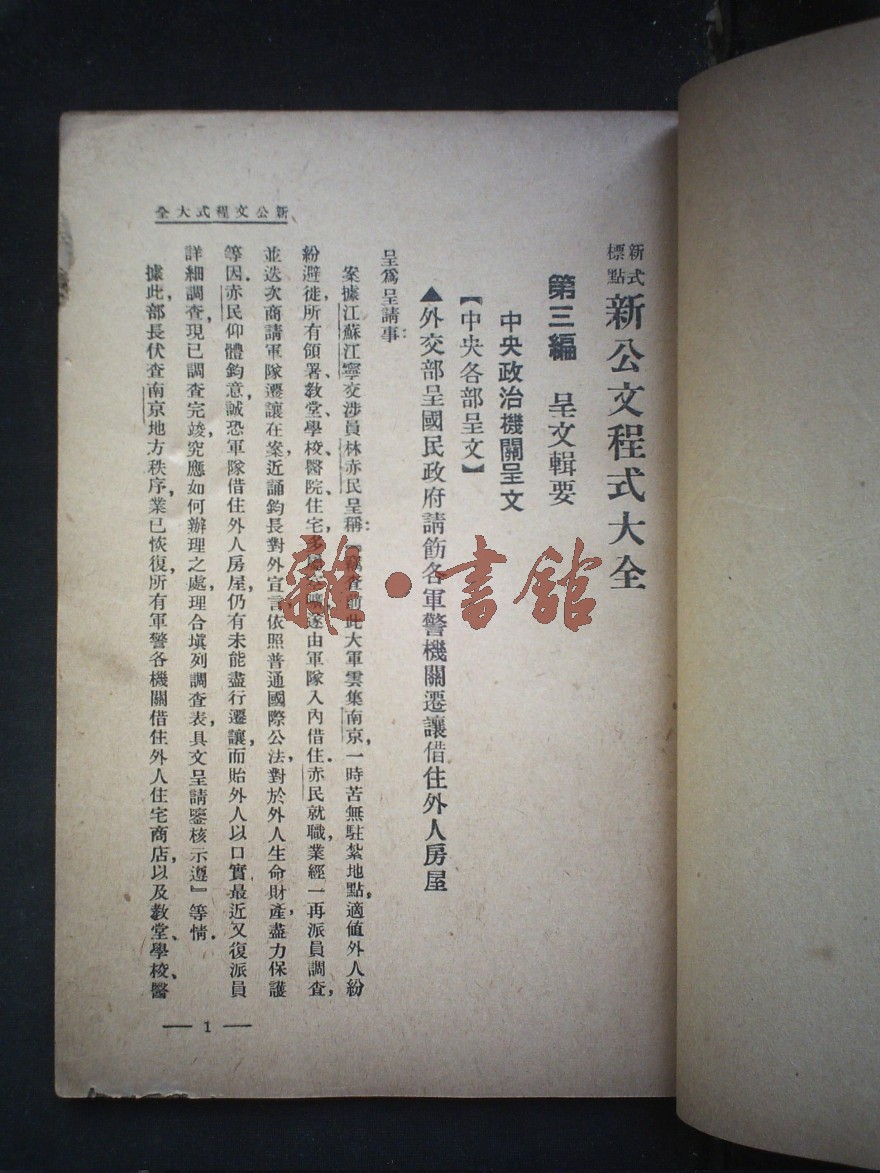 新式標點 新公文程式大全
第三編 呈文輯要
中央政治機關呈文
【中央各部呈文】
▲外交部呈國民政府請飭各軍警機關遷讓借住外人房屋
呈爲呈請事：
案據江蘇江寧交涉員林赤民呈稱：『竊查前此大軍雲集南京，一時苦無駐紮地點，適値外人紛
紛避徙，所有領署、敎堂、學校、醫院、住宅，多遂由軍隊入內借住．赤民就職，業經一再派員調查，
並迭次商請軍隊遷讓在案，近誦鈞長對外宣言，依照普通國際公法，對於外人生命財產，盡力保護
等因．赤民仰體鈞意，誠恐軍隊借住外人房屋，仍有未能盡行遷讓，而貽外人以口實，最近又復派員
詳細調查，現已調查完竣，究應如何辦理之處，理合塡列調查表，具文呈請鑒核示遵』等情．
據此，部長伏查南京地方秩序，業已恢復，所有軍警各機關借住外人住宅商店，以及敎堂、學校、醫
新公文程式大全
— 1 —
雜·書館